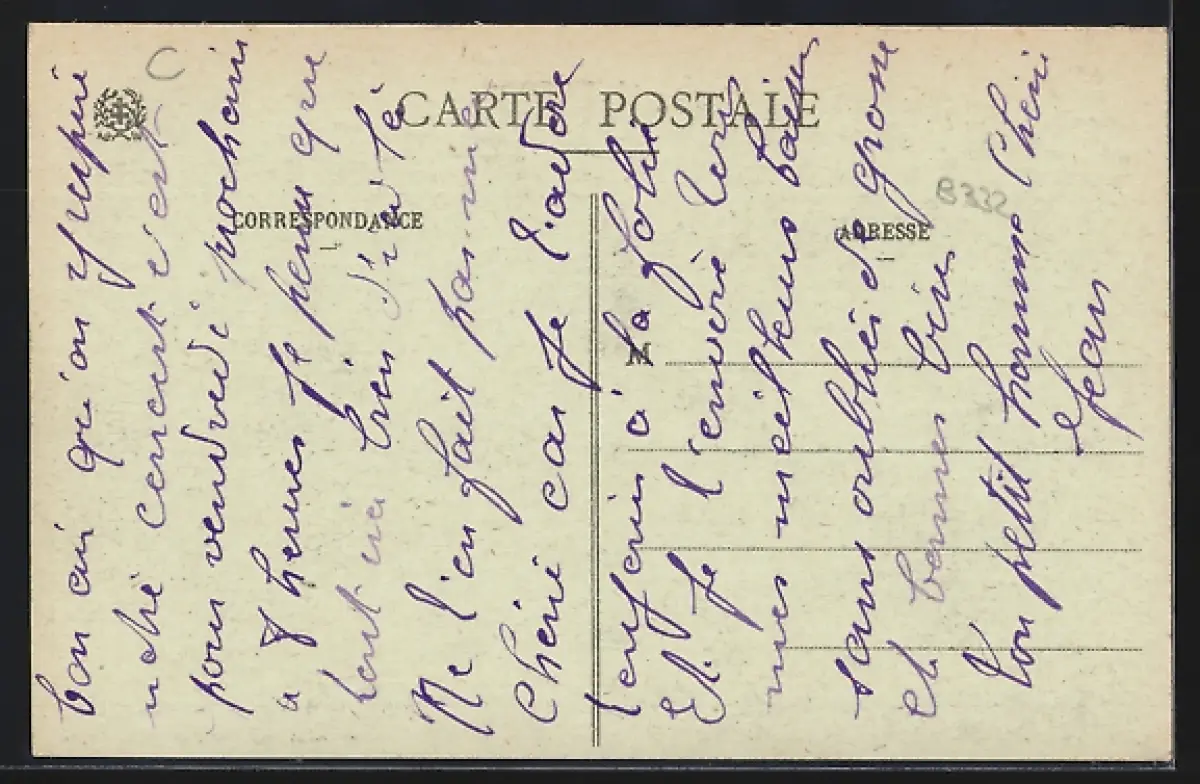 C
CARTE POSTALE
CORRESPONDANCE
ADRESSE
B332
M
bon air qu'on y respire
notre concert c'est
pour vendredi prochain
a 8 heures je pense que
tout ira bien d'ici là
Ne t'en fait pas
Chérie car je t'adore
à la folie
Et je t'envoie
mes meilleurs baisers
sans oublier de grosse
et bonnes
Ton petit homme Chéri
Jean